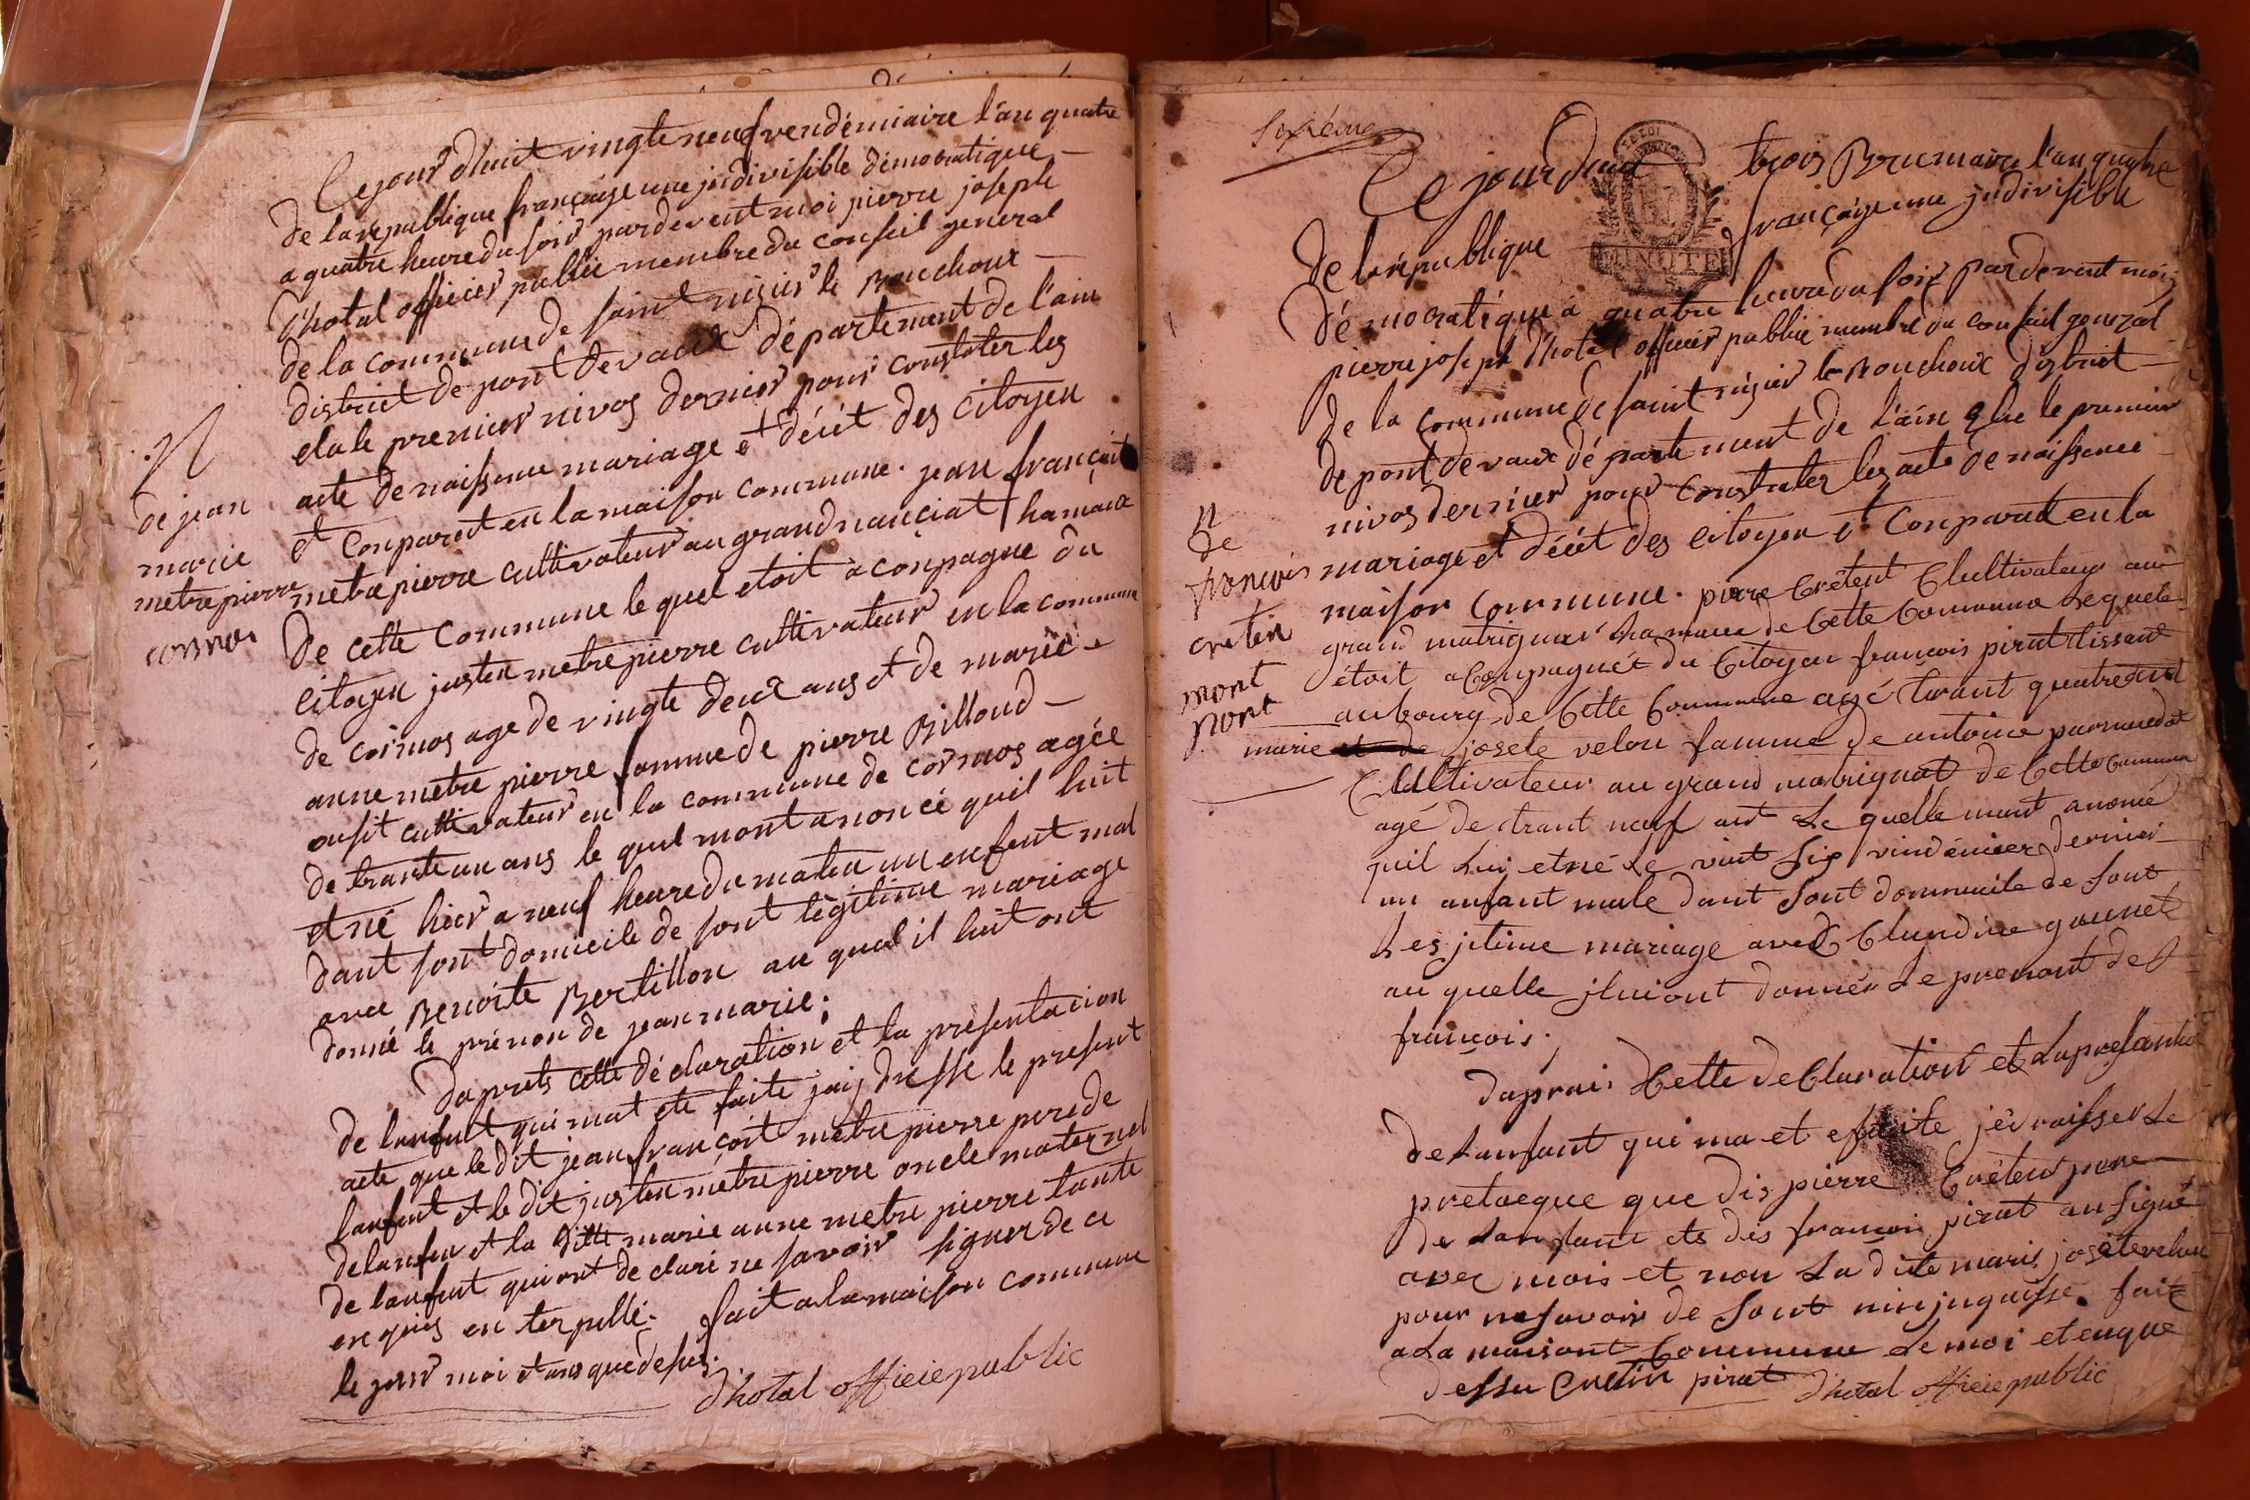 Ce jourd'huit vingte neuf vendémiaire l'an quatre
de la république françaÿse une jndivisible démocratique
a quatre heure du soir pardevent moi pierre joseph
D'hotal officier public membre du conseil general
de la commune de saint nisier le Bouchoux
district de pont de vaux département de l'ain
elu le premier nivos dernier pour constater les
acte de naissence mariage et décét des citoyen
et conparat en la maison commune. jean françoit
metre pierre cultivateur au grand nanciat hamaux
de cette commune le quel etoit aconpagne du
citoyen justin metre pierre cultivateur en la commune
de cormos age de vingte deux ans et de marie
anne metre pierre famme de pierre Billoud
ausit cultivateur en la commune de cormos agée
de trante un ans le quel mont anoncé quil luit
et né hier a neuf heure du matin un enfent mal
dant sont domicile de sont légitime mariage
avec Benoite Bertillon au qual il luit ont
donné le prénon de jean marie;
daprets cette déclaration et la présentacion
de lanfent qui mat ete faite jaij dressé le présent
acte que le dit jean françoit metre pierre pere de
lanfent et le dit justin metre pierre oncle maternel
de lanfen et la ditte marie anne metre pierre tante
de lanfent qui ont de claré ne savoir signer de ce
enquis en terpellé. fait a la maison commune
le jour moi et ans que desus.
d'hotal officie public
N
de jean
marie
metrepierre
cormos
sixiéme
Ce jourdeux trois Brumaire l'an quatre
de la république françaÿse une jndivisible
démocratique à quatre heure du soir pardevent moi
pierre joseph d'hotal officier public membre du conseil general
de la commune de saint nisier le Bouchoux district
de pont de vaux département de l'ain elu le premier
nivos dernier pour constater les acte de naissence
mariage et décét des citoyen et conparat en la
maison commune. pierre Crétent Cultivateur au
grand matrignat hamaux de Cette Commune Lequele
étoit aCompagnét du Citoyen francois pirat tissant
au bourg de Cette Commune agé trant quatre ant
marie josete velon famme de antoine
Cultivateur au grand matrignat de Cette Commune
agé de trant neuf ant Le quelle mant anoncé
quil Lui et né Le vint six vindémier dernier
un anfant male dant sont dommicile de sont
Lesjitime mariage avec Claudine gounet
au quelle jluiont donnér Le prenont de
francois.
daprai Cette deClaration et La presantation
de Lanfant qui ma et efaite jéi raisser Le
pretacque que dis pierre Crétent pere
de Lanfant et dis francois pirat an signé
avec mois et non La dite marie josete velon
pour nesavoir de sout fait
a La maisont Commune Le moi et en que
dessu Cretin pirat d'hotal officie public
N
de
francois
cretin
mort
mort